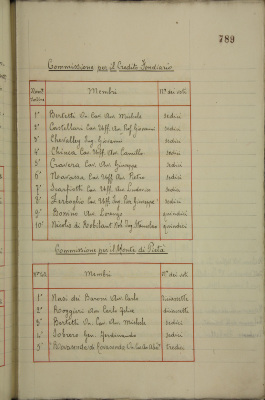 789
Commissione per il Credito Fondiario
Membri N° dei voti
1° Bertetti On. Cav. Avv. Michele sedici
2° Castellani Cav. Uff. Avv. Prof. Giovanni sedici
3° Chevalley Ing. Giovanni sedici
4° Chiesa Cav. Uff. Avv. Camillo sedici
5° Cravera Cav. Avv. Giuseppe sedici
6° Cav. Uff. Avv. Pietro sedici
7° Scarfiotti Cav. Uff. Avv. Ludovico sedici
8° Cav. Uff. Ing. Giuseppe sedici
9° Bonino Avv. Lorenzo quindici
10° Nicolis di Robilant Ing. Stanislao quindici
Commissione pel Monte di Pietà
Membri N° dei voti
1° Nasi dei Baroni Avv. Carlo diciasette
2° Roggieri Avv. Carlo Felice diciasette
3° Bertetti On. Cav. Avv. Michele sedici
4° Sobrero Gen. Ferdinando sedici
5° On. Carlo tredici